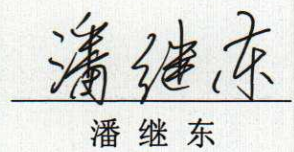 潘继东
潘继东